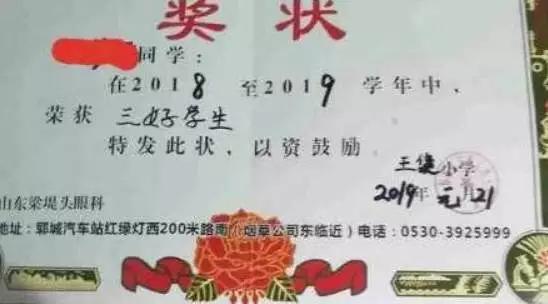 奖状
同学：
在2018至2019学年中，
荣获 三好学生
特发此状，以资鼓励
小学
2019年元月21
山东梁堤头眼科
地址：郓城汽车站红绿灯西200米路南（烟草公司东临近）电话：0530-3925999